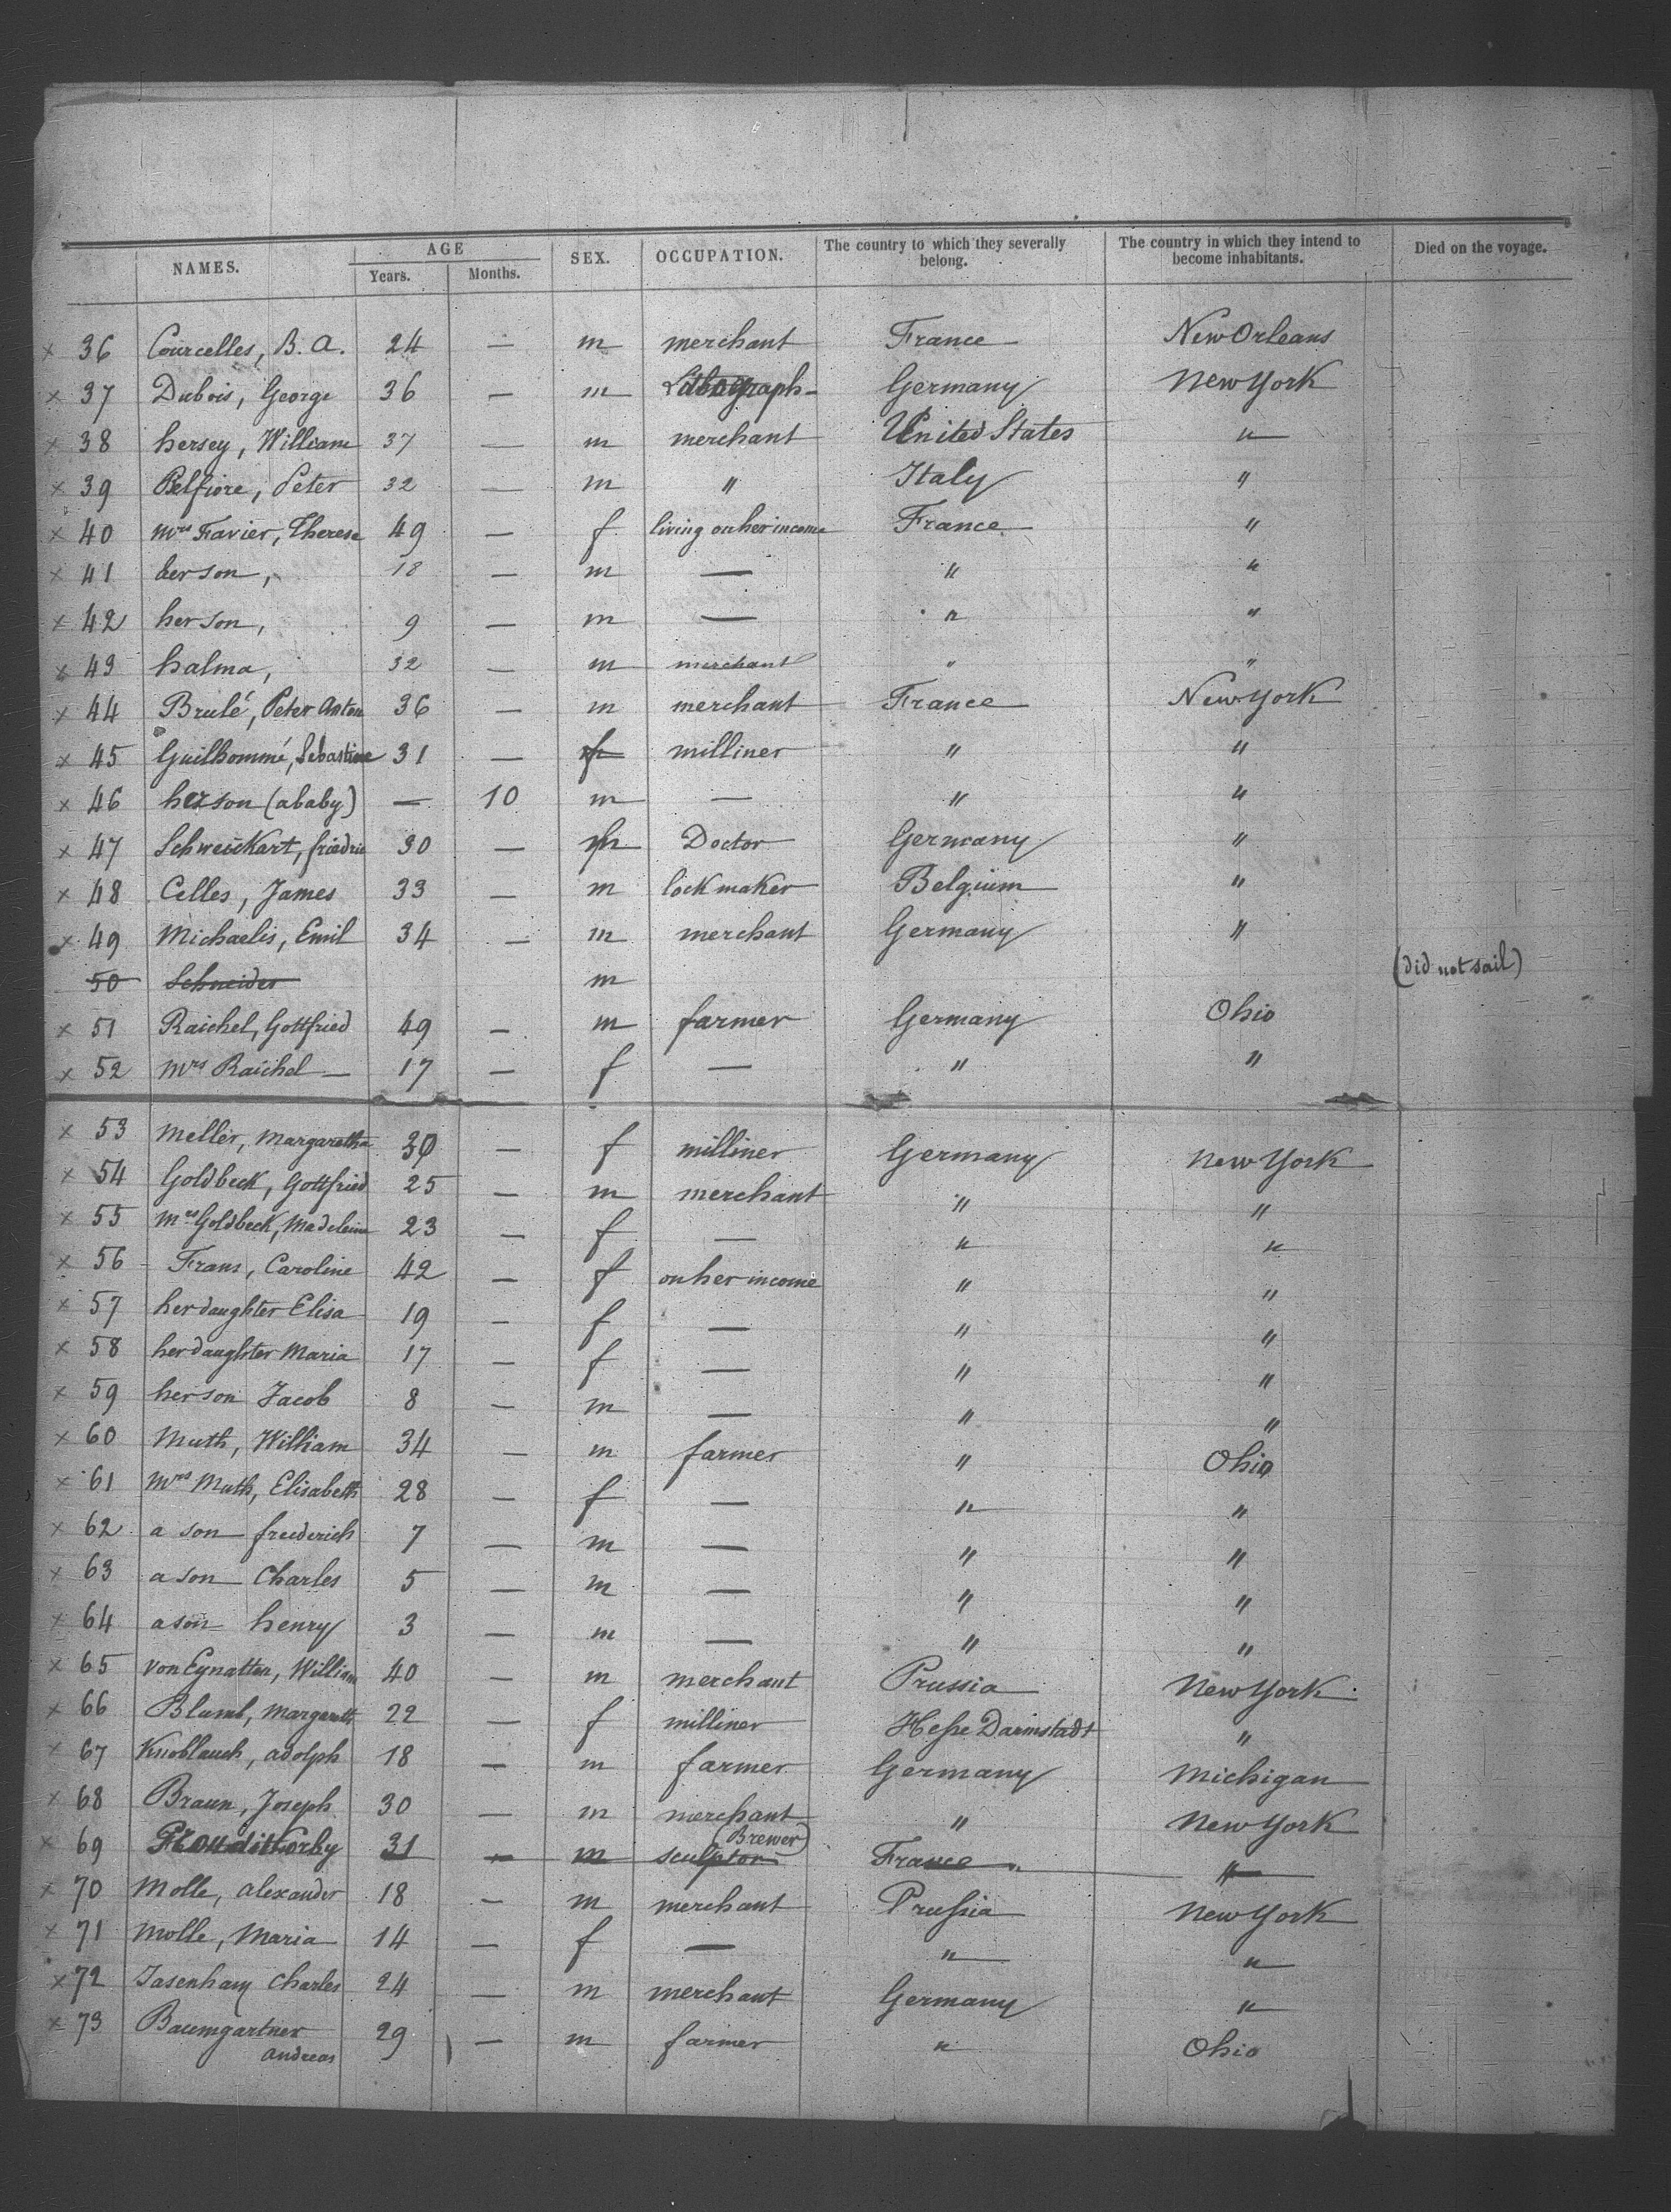 NAMES. AGE SEX. OCCUPATION. The country to which they severally belong. The country in which they intend to become inhabitants. Died on the voyage.
Years. Months.
x 36 Courcelles, B. A. 24 — m merchant France New Orleans
x 37 Dubois, George 36 — m Lithograph Germany New York
x 38 hersey, William 37 — m merchant United States "
x 39 Belfiore, Peter 32 — m " Italy "
x 40 Mrs Favier, Therese 49 — f living on her income France "
x 41 her son, 18 — m — " "
x 42 her son, 9 — m — " "
x 43 halma, 32 — m merchant " "
x 44 Brulé, Peter Anton 36 — m merchant France New York
x 45 Guilhommé, Sebastine 31 — f milliner " "
x 46 her son (a baby) — 10 m — " "
x 47 Schweickart, friedric 30 — m Doctor Germany "
x 48 Celles, James 33 — m lock maker Belgium "
x 49 Michaelis, Emil 34 — m merchant Germany "
50 Schneider m (did not sail)
x 51 Raichel, Gottfried 49 — m farmer Germany Ohio
x 52 Mrs Raichel — 17 — f — " "
x 53 Meller, Margaretha 30 — f milliner Germany New York
x 54 Goldbeck, Gottfried 25 — m merchant " "
x 55 Mrs Goldbeck, Madeleine 23 — f — " "
x 56 Frans, Caroline 42 — f on her income " "
x 57 her daughter Elisa 19 — f — " "
x 58 her daughter Maria 17 — f — " "
x 59 her son Jacob 8 — m — " "
x 60 Muth, William 34 — m farmer " Ohio
x 61 Mrs Muth, Elisabeth 28 — f — " "
x 62 a son freederich 7 — m — " "
x 63 a son Charles 5 — m — " "
x 64 a son henry 3 — m — " "
x 65 von Eynatten, William 40 — m merchant Prussia New York
x 66 Blumb, Margareth 22 — f milliner Hesse Darmstadt "
x 67 Knoblauch, adolph 18 — m farmer Germany Michigan
x 68 Braun, Joseph 30 — m merchant " New York
x 69 31 — m sculptor (Brewer) France "
x 70 Molle, alexander 18 — m merchant Prussia New York
x 71 Molle, Maria 14 — f — " "
x 72 Charles 24 — m merchant Germany "
x 73 Baumgartner andreas 29 — m farmer " Ohio